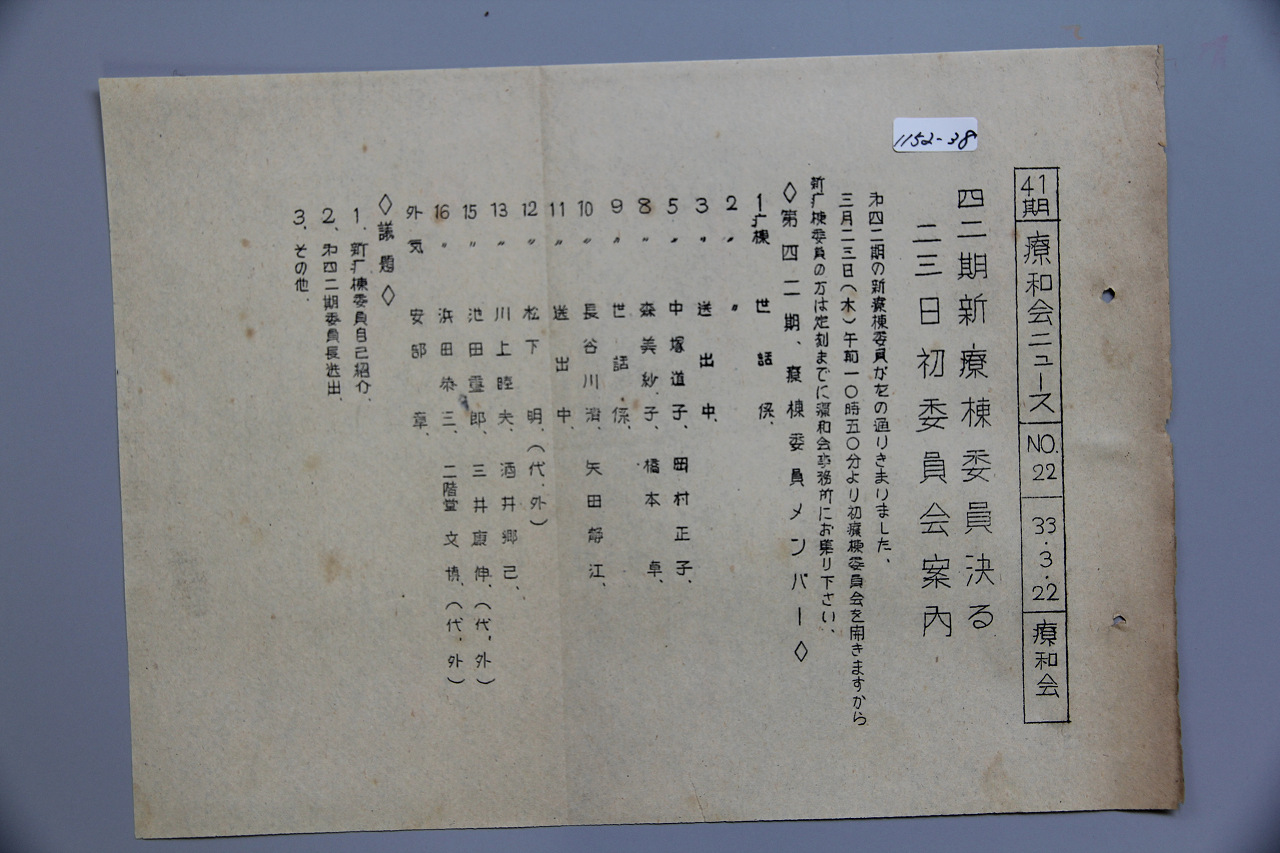 1152-38
41期 療和会ニュース NO.22 33.3.22 療和会
四二期新療棟委員決る
二三日初委員会案内
第四二期の新療棟委員が左の通りきまりました、
三月二三日（木）午前一〇時五〇分より初療棟委員会を開きますから
新疒棟委員の方は定刻までに療和会事務所にお集り下さい、
◇第四二期、療棟委員メンバー◇
1疒棟 世話係、
2〃 〃
3〃 送出中、
5〃 中塚道子、田村正子、
8〃 森美紗子、橋本卓、
9〃 世話係、
10〃 長谷川清、矢田静江、
11〃 送出中、
12〃 松下明、（代、外）
13〃 川上睦夫、酒井郷己、
15〃 池田靈郎、三井康伸、（代、外）
16〃 浜田泰三、二階堂文慎、（代、外）
外気 安部章、
◇議題◇
1、新疒棟委員自己紹介、
2、第四二期委員長送出、
3、その他、